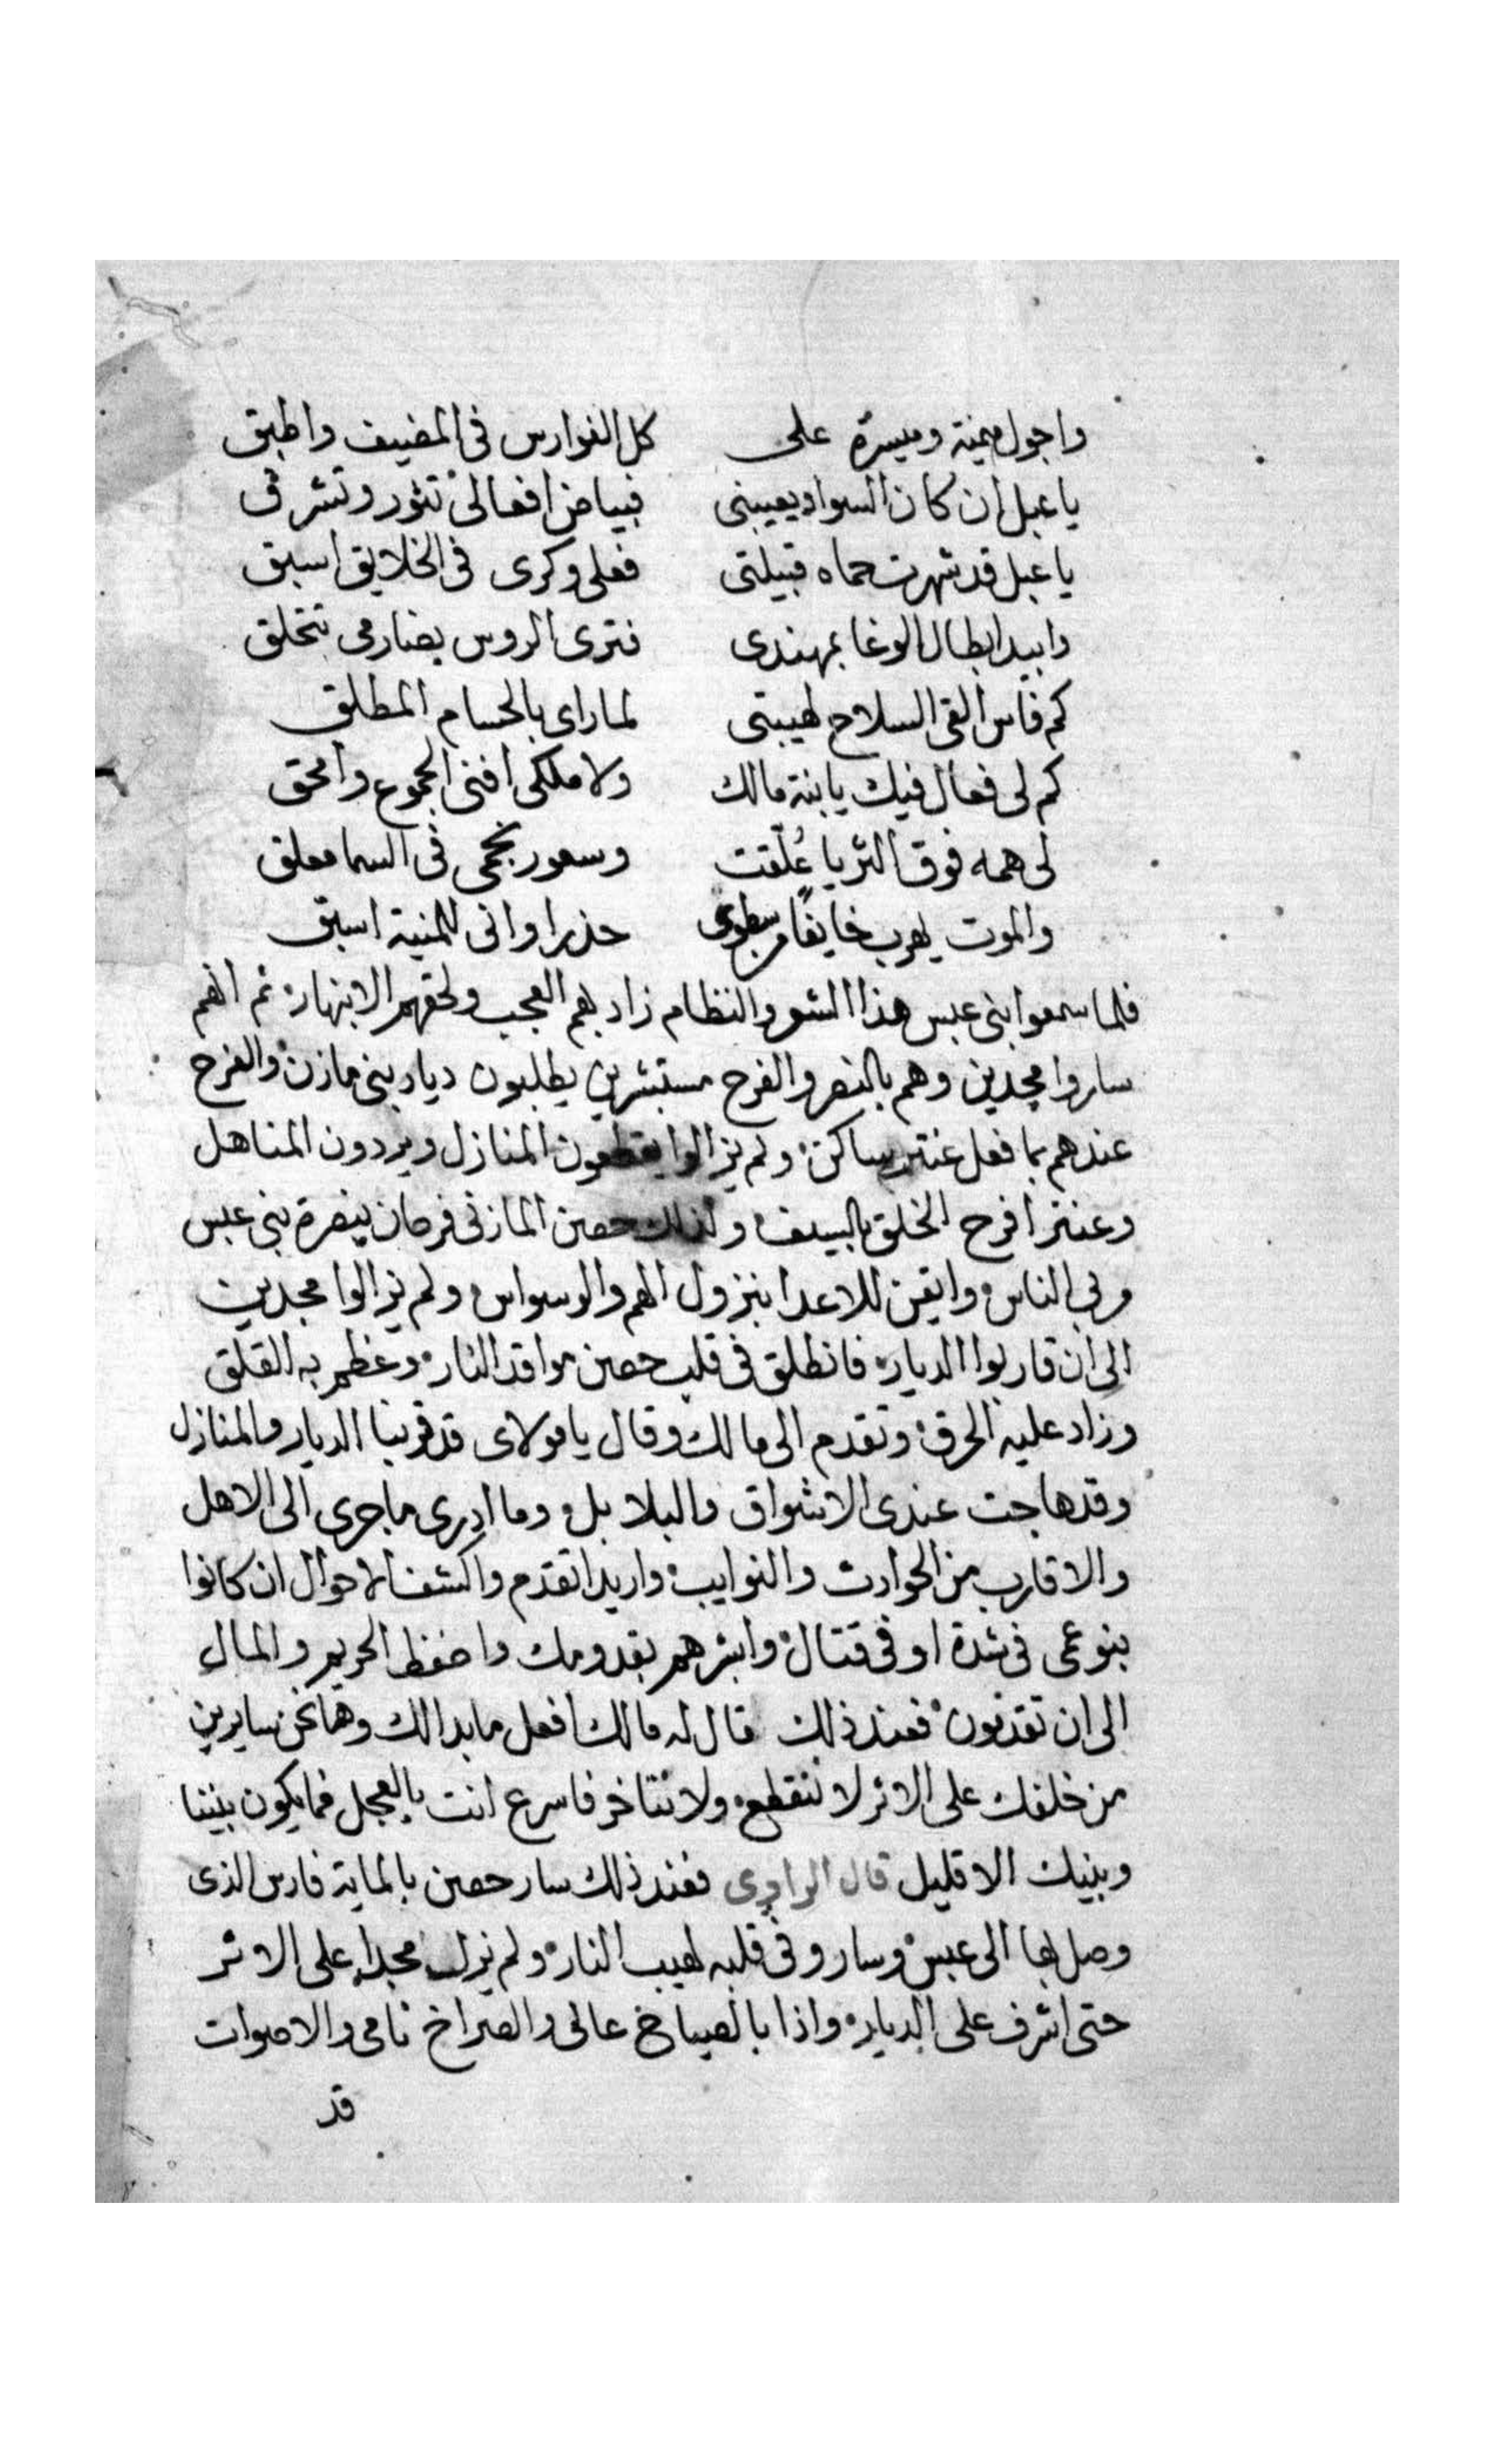 واجول ميمنة وميسرة على كل الفوارس فى المضيف واطبق
يا عبل ان كان السواد يعيبنى فبياض افعالى تنور وتشرق
يا عبل قد شهرت حماه قبيلتى فعلى وكرى فى الخلايق اسبق
وابيد ابطال الوغا بمهندى فترى الروس بصارمى تتخلق
كم فاس القى السلاح لهيبتى لما راى بالحسام المطلق
كم لى فعال فيك يا بنة مالك ولا ملكى افنى الجموع وامحق
لى همه فوق الثريا عُلّقت وسعود نجمى فى السما معلق
والموت يهرب خايفًا من سطوتى حذرا وانى للمنية اسبق
فلما سمعوا بنى عبس هذا الشعر والنظام زاد بهم العجب ولحقهم الانبهار ثم انهم
ساروا مجدين وهم بالنصر والفرح مستبشرين يطلبون ديار بنى مازن والفرح
عندهم بما فعل عنتر ساكن ولم يزالوا يقطعون المنازل ويردون المناهل
وعنتر افرح الخلق بالسيف وكذلك حصن المازنى فرحان بنصرة بنى عبس
وايقن للاعدا بنزول الهم والوسواس ولم يزالوا مجدين
الى ان قاربوا الديار فانطلق فى قلب حصن مواقد النار وعظم به القلق
وزاد عليه الحرق وتقدم الى مالك وقال يا مولاى قد قربنا الديار والمنازل
وقد هاجت عندى الاشواق والبلابل وما ادرى ما جرى الى الاهل
والاقارب من الحوادث والنوايب واريد اتقدم واكشف الاحوال ان كانوا
بنو عمى فى شدة او فى قتال وابشرهم بقدومك واحفظ الحريم والمال
الى ان تقدمون فعند ذلك قال له مالك افعل ما بدا لك وها نحن سايرين
من خلفك على الاثر لا ننقطع ولا نتاخر فاسرع انت بالعجل فما يكون بيننا
وبينك الا قليل قال الراوى فعند ذلك سار حصن بالماية فارس الذى
وصل بها الى عبس وسار وفى قلبه لهيب النار ولم يزل مجدا على الاثر
حتى اشرف على الديار واذا بالصياح عالى والصراخ نامى والاصوات
قد